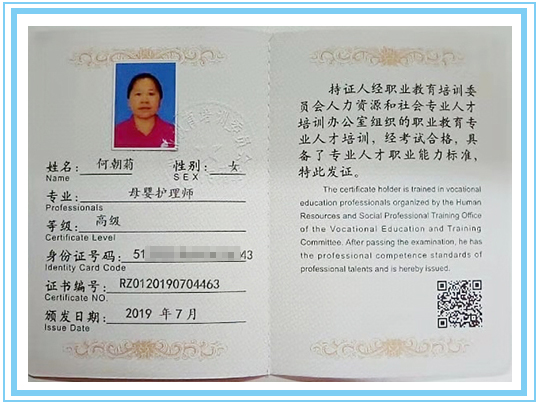 姓名: 何朝菊 性别: 女
Name SEX
专业: 母婴护理师
Professionals
等级: 高级
Certificate Level
身份证号码: 51 43
Identity Card Code
证书编号: RZ0120190704463
Certificate NO.
颁发日期: 2019 年 7 月
Issue Date
持证人经职业教育培训委
员会人力资源和社会专业人才
培训办公室组织的职业教育专
业人才培训，经考试合格，具
备了专业人才职业能力标准，
特此发证。
The certificate holder is trained in vocational
education professionals organized by the Human
Resources and Social Professional Training Office
of the Vocational Education and Training
Committee. After passing the examination, he has
the professional competence standards of
professional talents and is hereby issued.